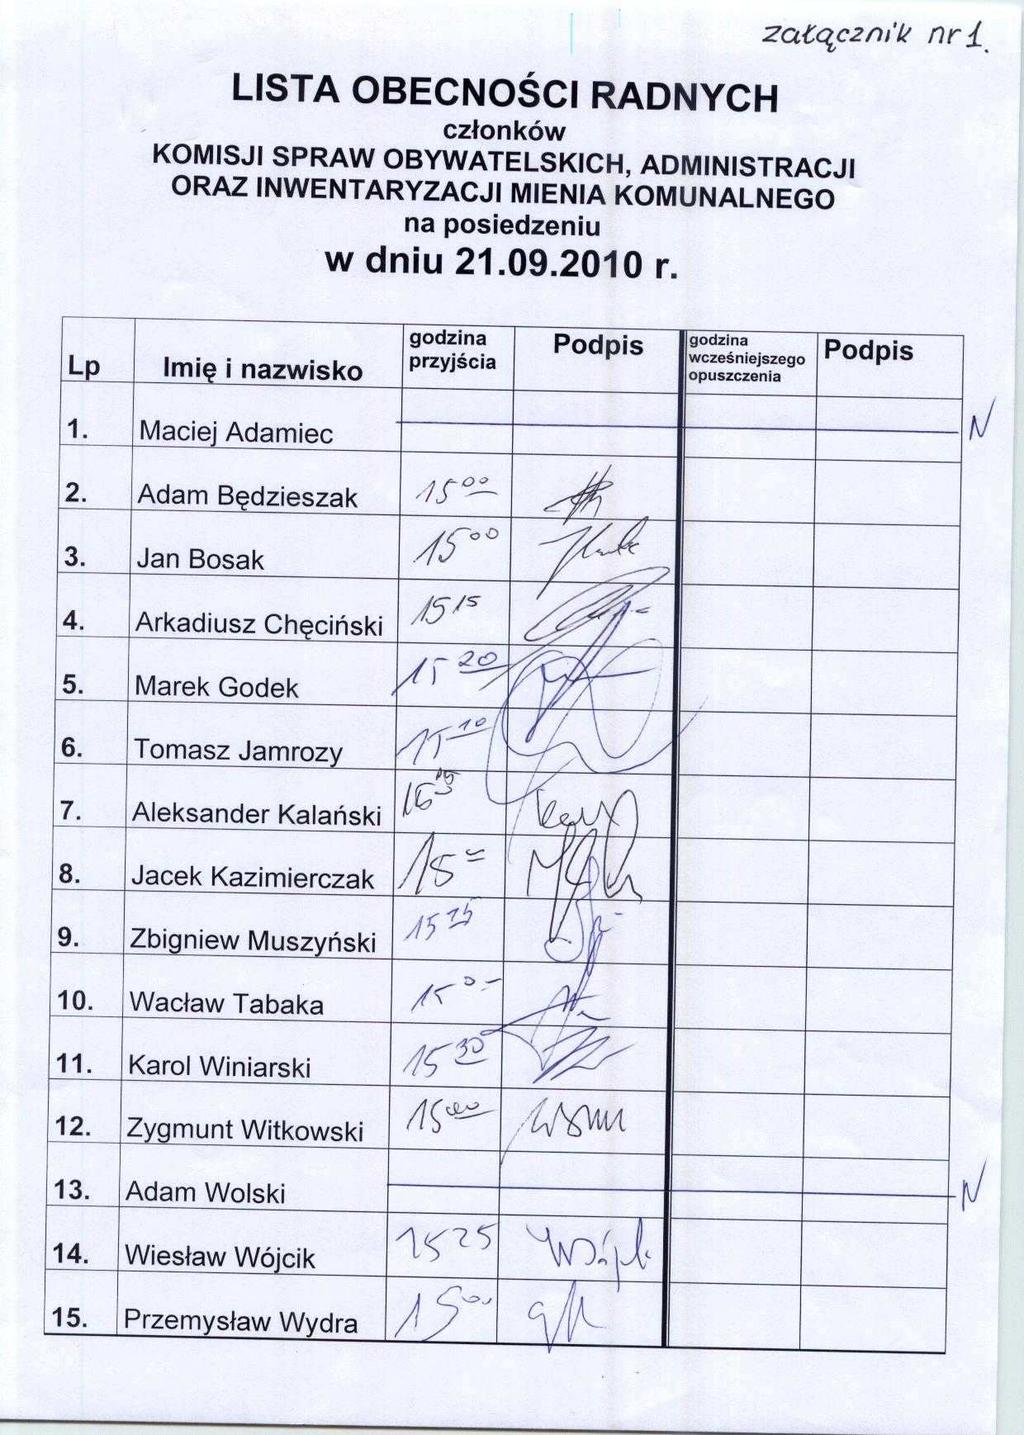 załącznik nr 1.
LISTA OBECNOŚCI RADNYCH
członków
KOMISJI SPRAW OBYWATELSKICH, ADMINISTRACJI
ORAZ INWENTARYZACJI MIENIA KOMUNALNEGO
na posiedzeniu
w dniu 21.09.2010 r.
Lp Imię i nazwisko godzina przyjścia Podpis godzina wcześniejszego opuszczenia Podpis
1. Maciej Adamiec N
2. Adam Będzieszak 15 00
3. Jan Bosak 15 00
4. Arkadiusz Chęciński 15 15
5. Marek Godek 15 20
6. Tomasz Jamrozy 15 10
7. Aleksander Kalański
8. Jacek Kazimierczak
9. Zbigniew Muszyński 15 25
10. Wacław Tabaka
11. Karol Winiarski 15 30
12. Zygmunt Witkowski 15 00
13. Adam Wolski N
14. Wiesław Wójcik 15 25
15. Przemysław Wydra 15 00